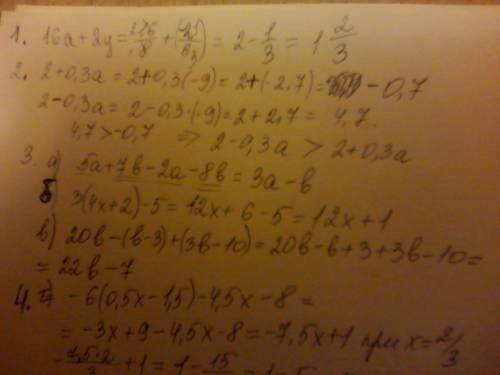 1. 16a+2y= 2·16/8 +(-2·1/6₃) = 2-1/3 = 1 2/3
2. 2+0,3a = 2+0,3(-9)=2+(-2,7)= -0,7
2-0,3a = 2-0,3·(-9)=2+2,7= 4,7.
4,7>-0,7 ⇒ 2-0,3a > 2+0,3a
3. а) 5a+7b-2a-8b = 3a-b
б) 3(4x+2)-5=12x+6-5=12x+1
в) 20b-(b-3)+(3b-10)=20b-b+3+3b-10=
=22b-7
4. -6(0,5x-1,5)-4,5x-8=
= -3x+9-4,5x-8=-7,5x+1 при x=2/3